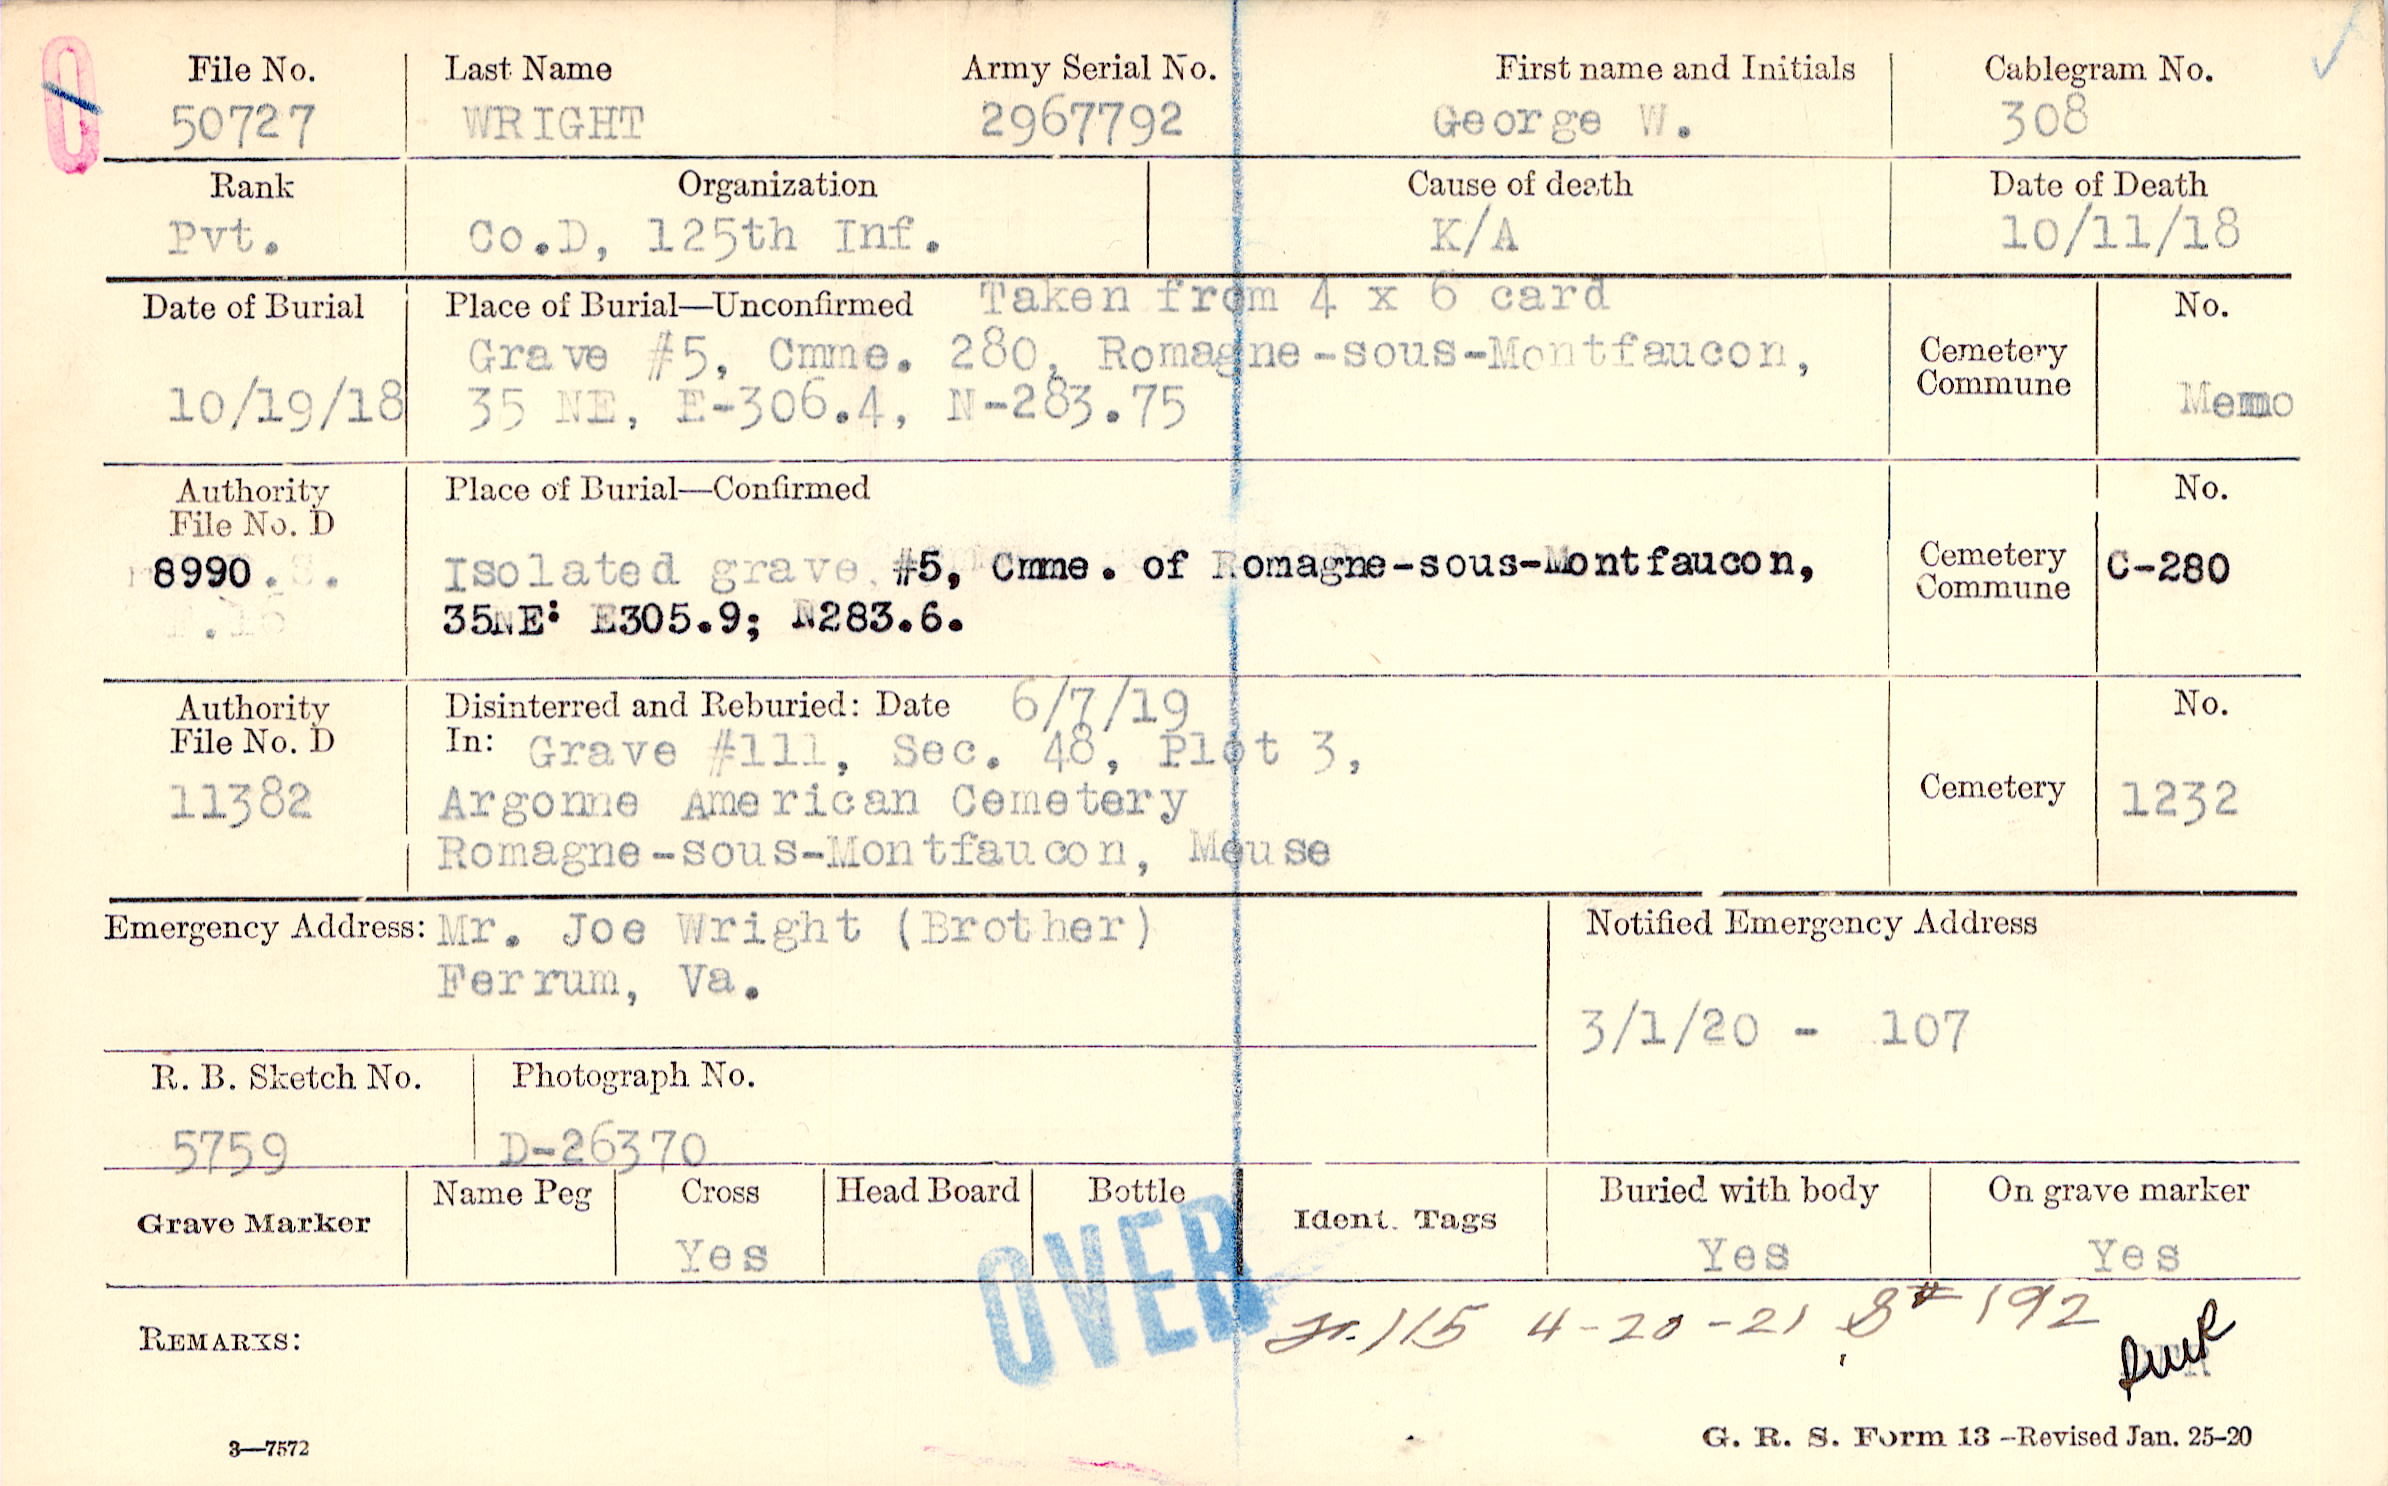 File No. Last Name Army Serial No. First name and Initials Cablegram No.
50727 WRIGHT 2967792 George W. 308
Rank Organization Cause of death Date of Death
Pvt. Co.D, 125th Inf. K/A 10/11/18
Date of Burial Place of Burial—Unconfirmed Taken from 4 x 6 card No.
Grave #5, Cmme. 280, Romagne-sous-Montfaucon, Cemetery
10/19/18 35 NE, E-306.4, N-283.75 Commune Memo
Authority Place of Burial—Confirmed No.
File No. D
8990. Isolated grave, #5, Cmme. of Romagne-sous-Montfaucon, Cemetery C-280
35NE: E305.9; N283.6. Commune
Authority Disinterred and Reburied: Date 6/7/19 No.
File No. D In: Grave #111, Sec. 48, Plot 3,
11382 Argonne American Cemetery Cemetery 1232
Romagne-sous-Montfaucon, Meuse
Emergency Address: Mr. Joe Wright (Brother) Notified Emergency Address
Ferrum, Va.
3/1/20 - 107
R. B. Sketch No. Photograph No.
5759 D-26370
Grave Marker Name Peg Cross Head Board Bottle Ident. Tags Buried with body On grave marker
Yes Yes Yes
OVER
115 4-20-21 S# 192
REMARKS:
3—7572 G. R. S. Form 13—Revised Jan. 25-20